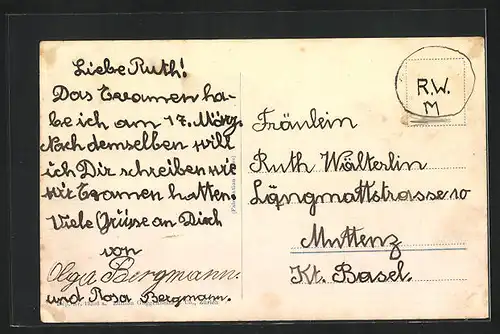 Liebe Ruth!
Das Examen ha-
be ich am 17. März.
Nach demselben will
ich Dir schreiben wie
wir Examen hatten.
Viele Grüsse an Dich
von
Olga Bergmann.
und Rosa Bergmann.
R.W.
M
Fräulein
Ruth Wälterlin
Längmattstrasse 10
Muttenz
Kt. Basel.